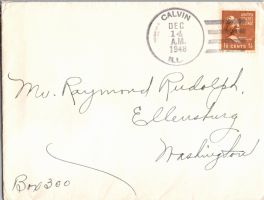 CALVIN
DEC
14
A.M.
1948
ILL.
UNITED STATES
1½ CENTS 1½
Mr. Raymond Rudolph,
Ellensburg
Washington
Box 300